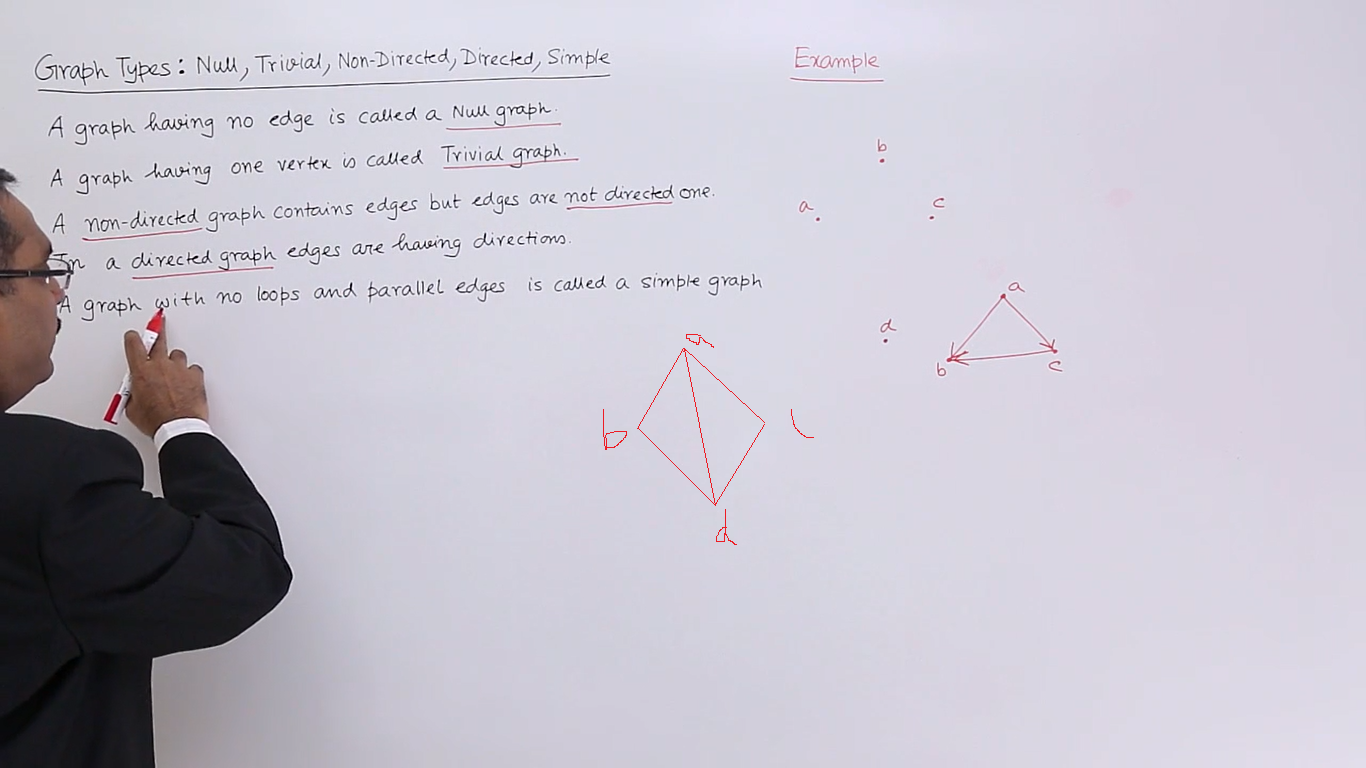 Graph Types: Null, Trivial, Non-Directed, Directed, Simple
A graph having no edge is called a Null graph.
A graph having one vertex is called Trivial graph.
A non-directed graph contains edges but edges are not directed one.
In a directed graph edges are having directions.
A graph with no loops and parallel edges is called a simple graph
Example
b
a
c
d
a
b
c
a
b
c
d